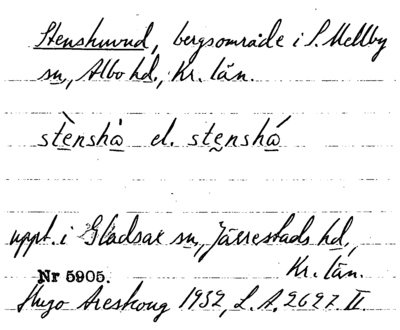 Stenshuvud, bergsområde i S. Mellby
sn, Albo hd, Kr. län.
stènshà el. stenshá
uppt. i Gladsax sn, Järrestads hd,
Kr. län.
Nr 5905.
Hugo Areskoug 1932, L.A. 2627. II.